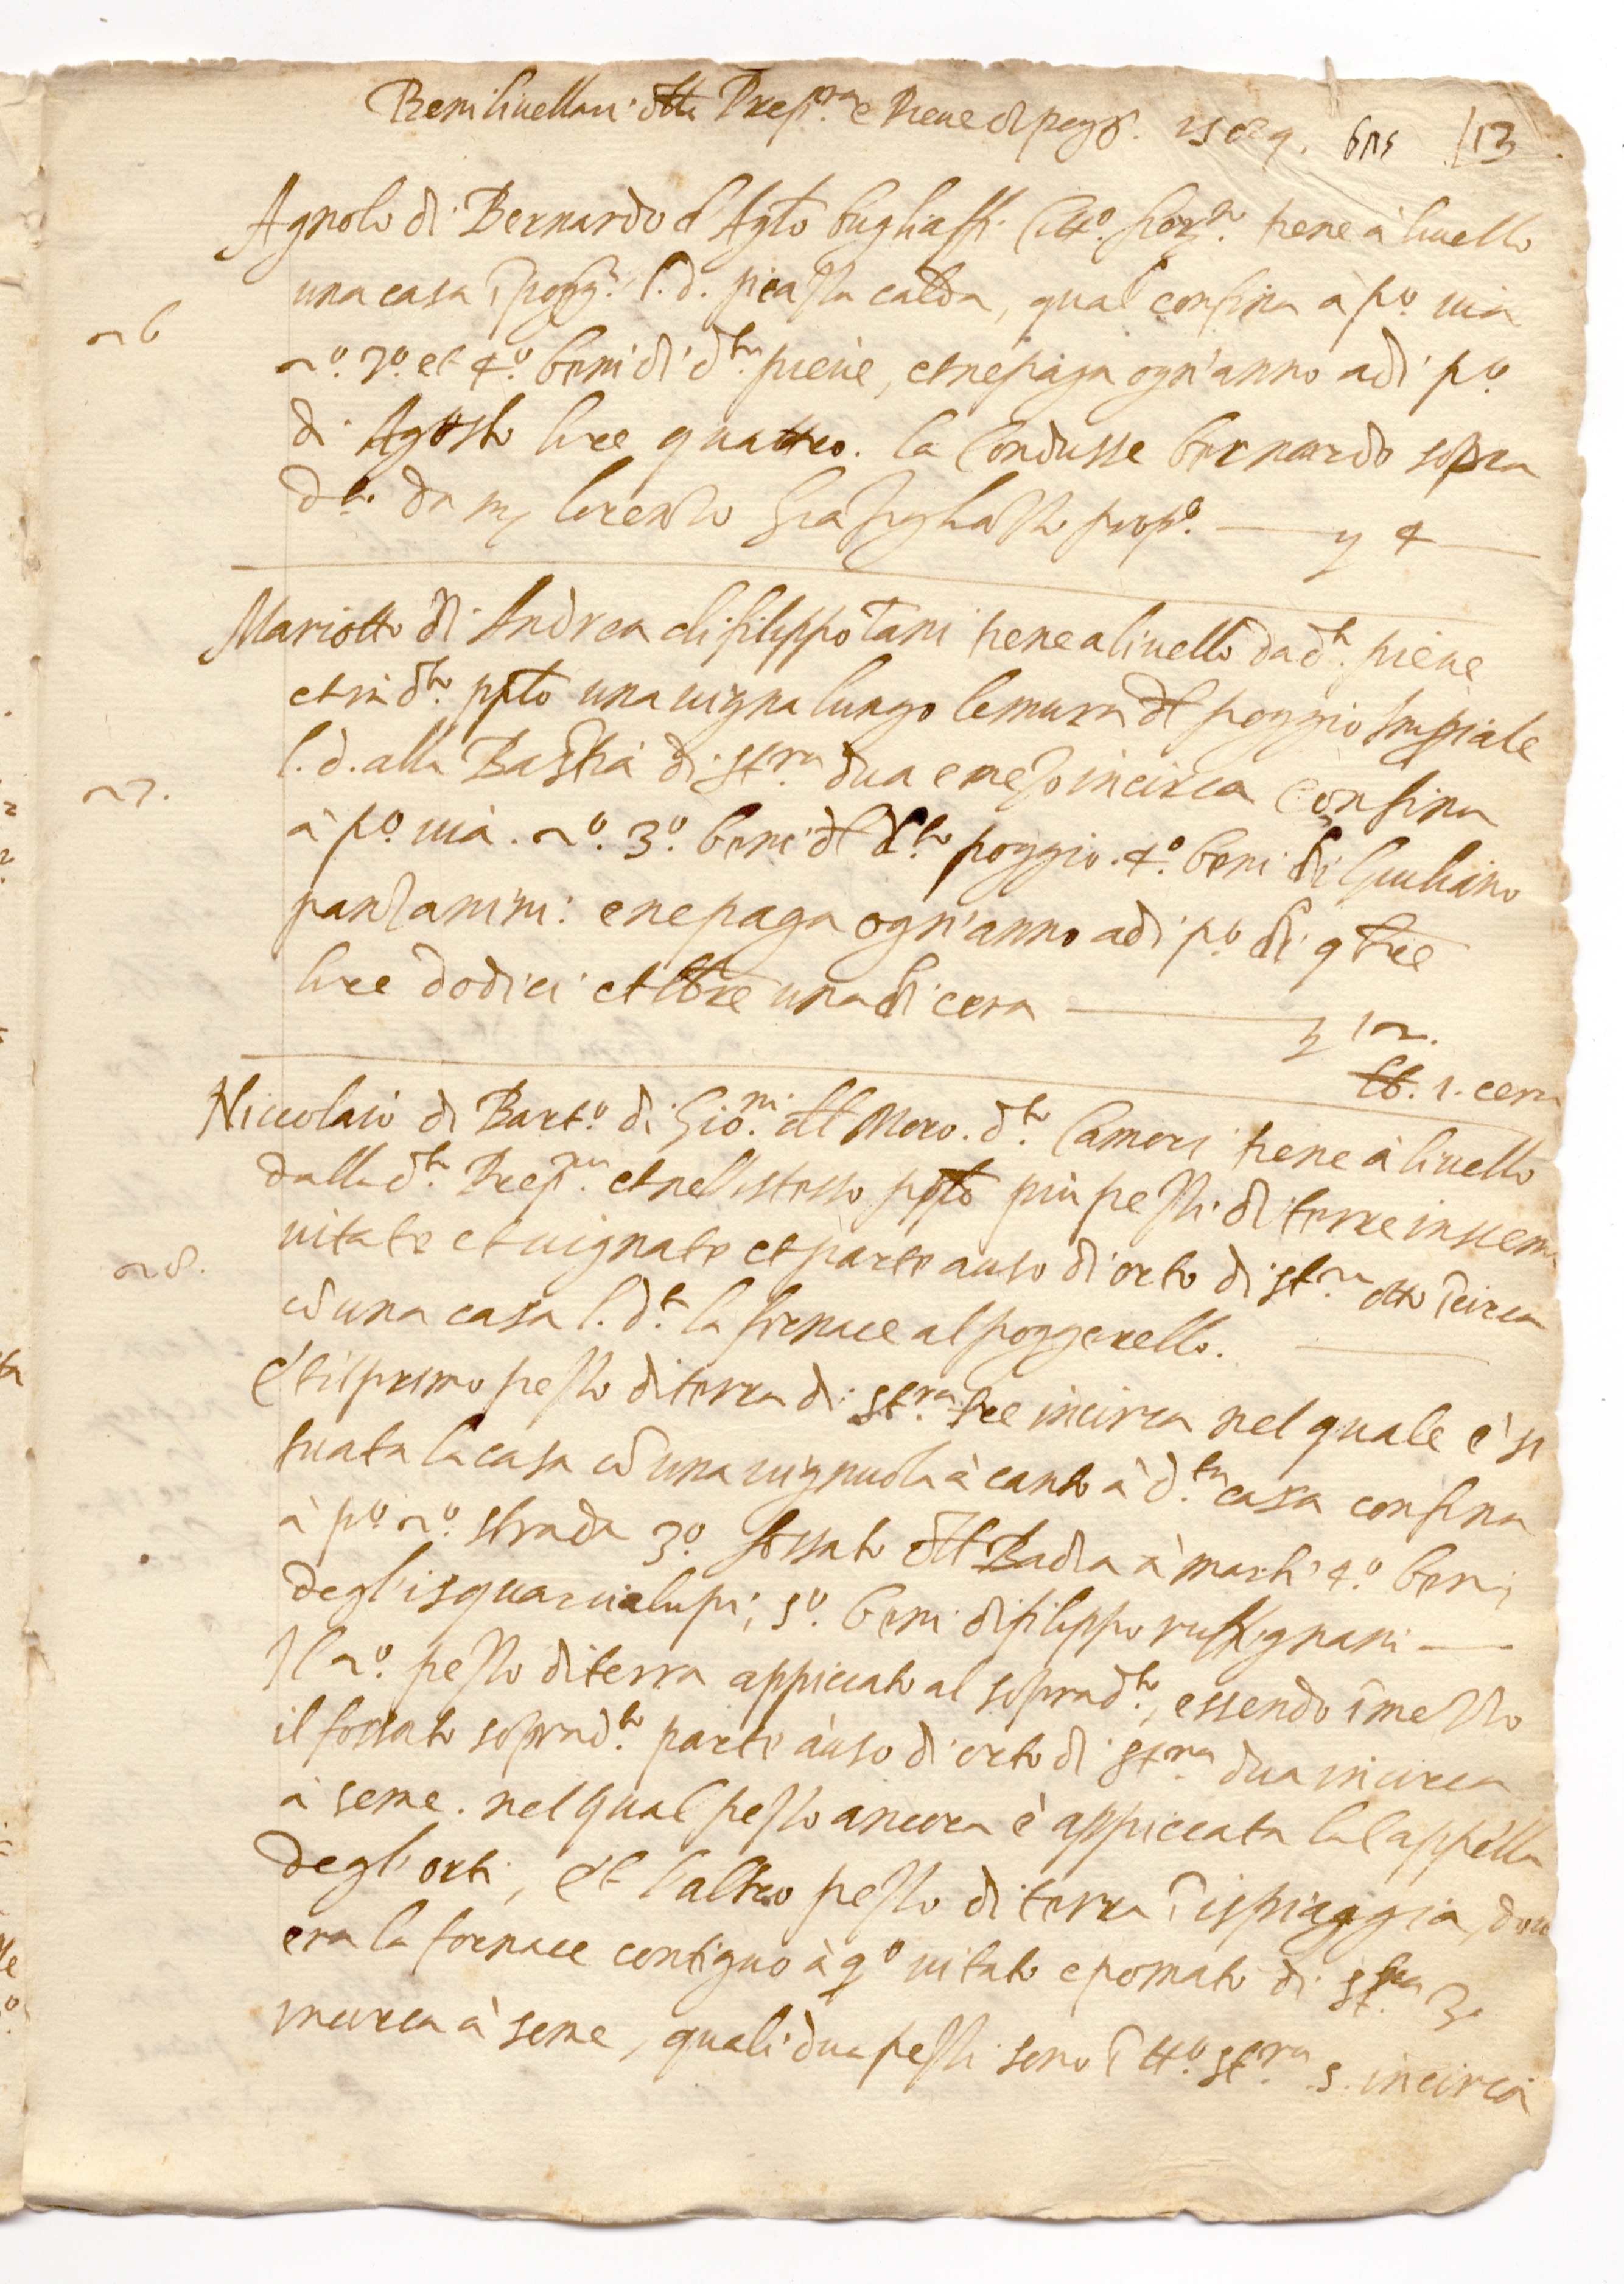 Beni livellari della Prep.ra e Pieve di pogg.
13
Agnolo di Bernardo d'Agl.o bugliaffi tiene à livello
una casa ĩ pogg. l.d. piazza calda, qual confina à p.o via
26
2.o 3.o et 4.o beni di d.ta pieve, et ne paga ogn'anno adi p.o
di Agosto lire quattro. la Condusse bernardo sopra
d.to da m. lorenzo prop.o — 4
Mariotto di Andrea di filippo Tani tiene a livello da d.ta pieve
et in d.to pplo una vigna lungo le mura del poggio Impiale
l.d. alla Bastia di st.ra dua e mezo incirca confina
27.
à p.o via. 2.o 3.o beni del d.to poggio. 4.o beni di Giuliano
panzanini: e ne paga ogn'anno adi p.o di 9bre
lire dodici et lbre una di cera — 12.
lb. 1. cera
Niccolaio di Bart.o di Gio.ni del Moro. d.to Camori tiene à livello
dalla d.ta Prep.ra et nell istesso pplo più pezzi di terre insieme
vitate et vignate et parte a uso di orto di st.ra otto ĩcirca
28.
cõ una casa l.d.ta la fornace al poggerello. —
Et il primo pezzo di terra di st.ra tre incirca nel quale è si
tuata la casa cõ una vignuola à canto à d.ta casa confina
à p.o 2.o strada 3.o fossato della Badia à marti 4.o beni
degl'isquarcialupi; 5.o beni di filippo ruffignani —
Il 2.o pezzo di terra appiccato al soprad.to, essendo ĩ mezzo
il fossato soprad.to parte à uso di orto di st.ra dua incirca
à seme. nel qual pezzo ancora è appiccata la Cappella
degl'orti, Et l'altro pezzo di terra ĩ ispiaggia, dove
era la fornace contiguo à q.o vitato e pomato di st.ra 3.
incirca à seme, quali dua pezzi sono ĩ tt.o st.ra 5. incirca